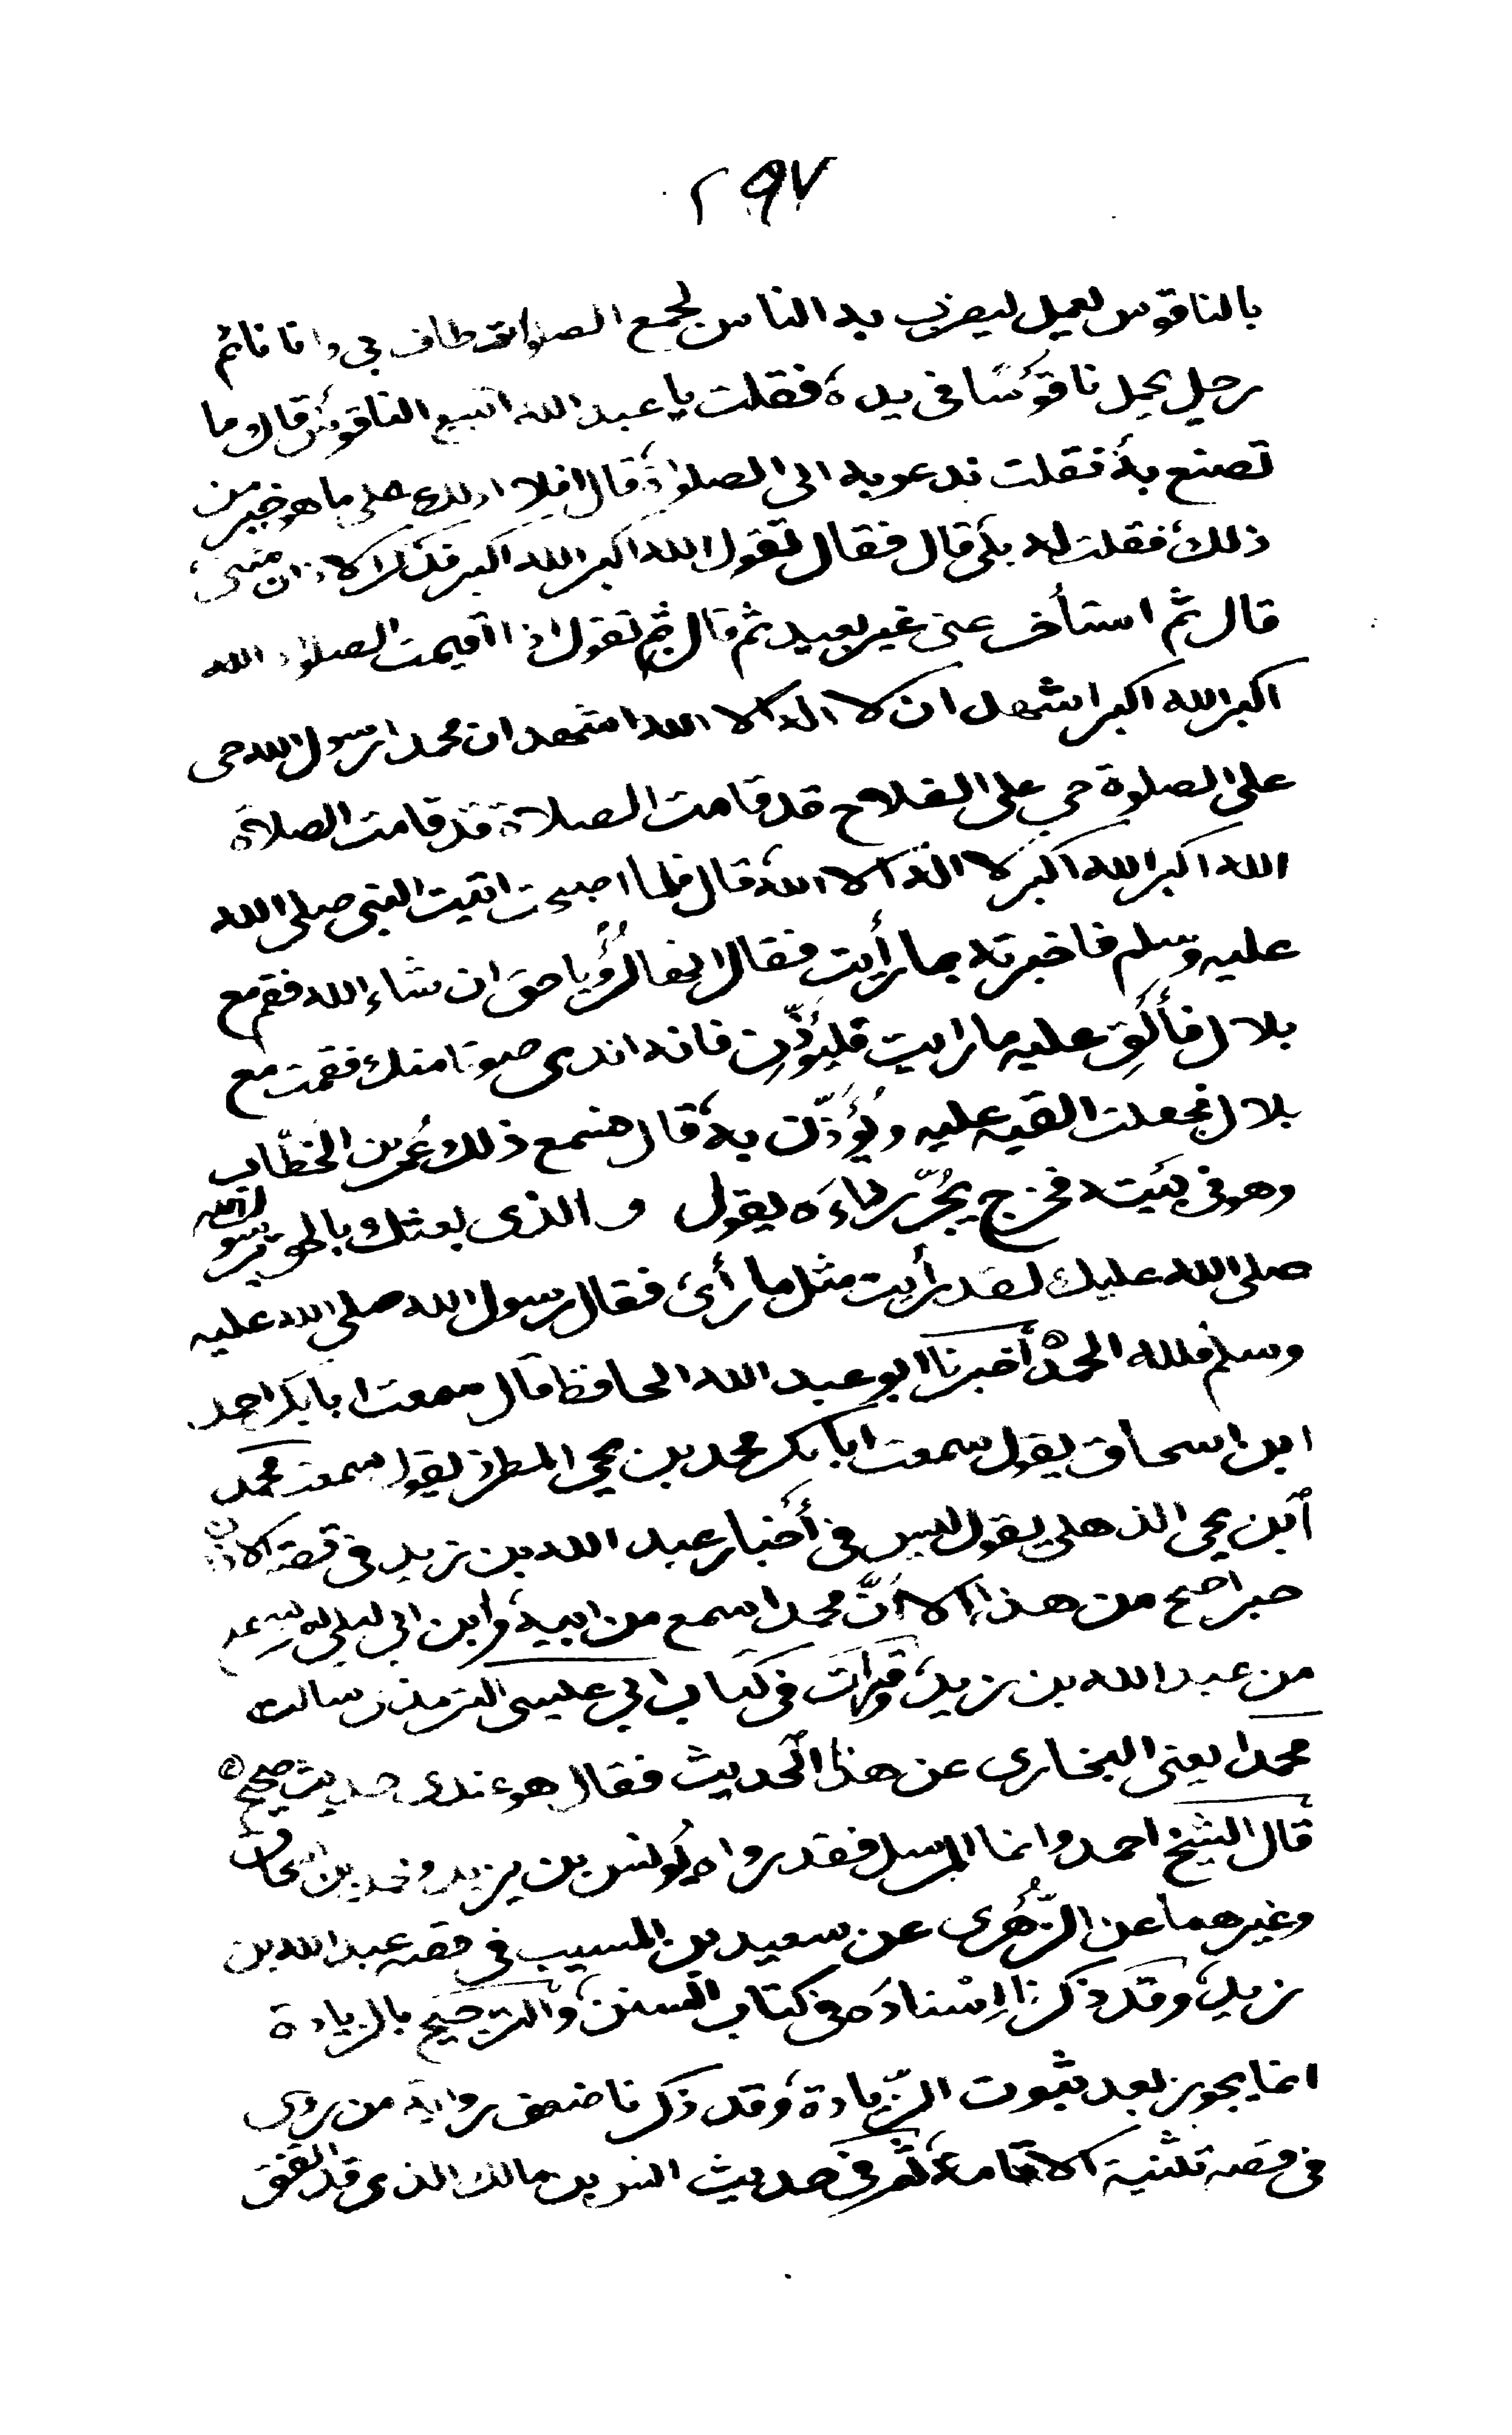 ٢٩٧
بالناقوس يعمل ليضرب به الناس لجمع الصلوات طاف بي وانا نائم
رجل يحمل ناقوسًا في يده فقلت يا عبد الله اتبيع الناقوس قال وما
تصنع به فقلت ندعو به الى الصلوٰة قال افلا ادلك على ما هو خير من
ذلك فقلت له بلى قال فقال تقول الله اكبر الله اكبر فذكر الاذان مثنى
قال ثم استأخر عني غير بعيد ثم قال ثم تقول اذا اقيمت الصلوٰة الله
اكبر الله اكبر اشهد ان لا اله الا الله اشهد ان محمدا رسول الله حي
على الصلوة حي على الفلاح قد قامت الصلاة قد قامت الصلاة
الله اكبر الله اكبر لا اله الا الله قال فلما اصبحت اتيت النبي صلى الله
عليه وسلم فاخبرته بما رأيت فقال انها لرُؤيا حق ان شاء الله فقم مع
بلال فألقِ عليه ما رايت فليؤذِّن فانه اندى صوتا منك فقمت مع
بلال فجعلت القيه عليه ويُؤَذِّن به قال فسمع ذلك عُمر بن الخطّاب
وهو في بيته فخرج يجُرّ رداءَه يقول والذي بعثك بالحق يرسول الله
صلى الله عليك لقد رأيت مثل ما رأى فقال رسول الله صلى الله عليه
وسلم فلله الحمد أخبرنا ابو عبد الله الحافظ قال سمعت ابا بكر احمد
ابن اسحاق يقول سمعت ابا بكر محمد بن يحيى المطرز يقول سمعت محمد
ابن يحي الذهلي يقول ليس في أخبار عبد الله بن زيد في قصة الاذان
خبر اصح من هذا الا أنَّ محمدا سمع من ابيه وابن ابي ليلى لم يسمع
من عبد الله بن زيد وقرات في كتاب ابي عيسى الترمذي سالت
محمدا يعني البخاري عن هذا الحديث فقال هو عندي حديث صحيح
قال الشيخ احمد وانما المرسل فقد رواه يُونس بن يزيد ومحمد بن اسحاق
وغيرهما عن الزُّهْري عن سعيد بن المسيب في قصه عبد الله بن
زيد وقد ذكرنا اِسْنادَه في كتاب السنن والترجيح بالزيادة
انما يجوز بعد ثبوت الزّيادة وقد ذكرنا ضعف رواية من روى
في قصه تثنية الاقامة ثم في حديث انس بن مالك الذي قد اتفق